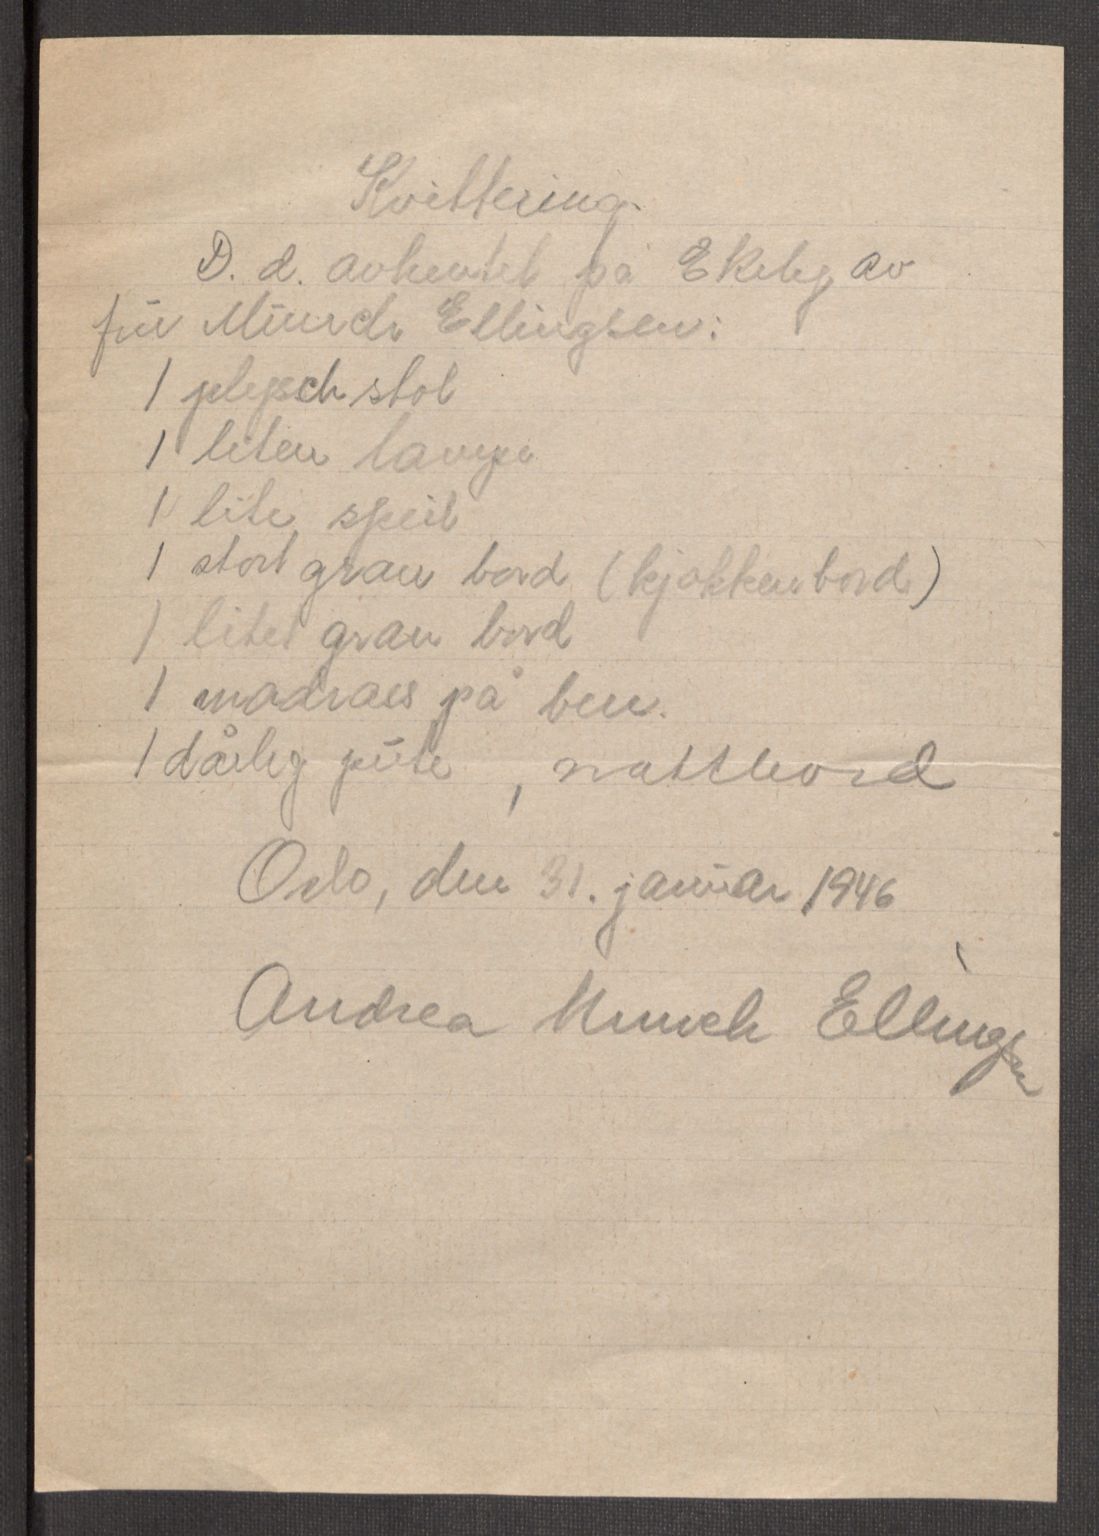 Kvittering.
D. d. avhentet på Ekely av
frü Münch Ellingsen:
1 plysch stol
1 liten lampe
1 lite speil
1 stort gran bord (kjøkkenbord)
1 litet gran bord
1 madrass på ben.
1 dårlig püte, nattbord
Oslo, den 31. janüar 1946
Andrea Munch Ellingsen